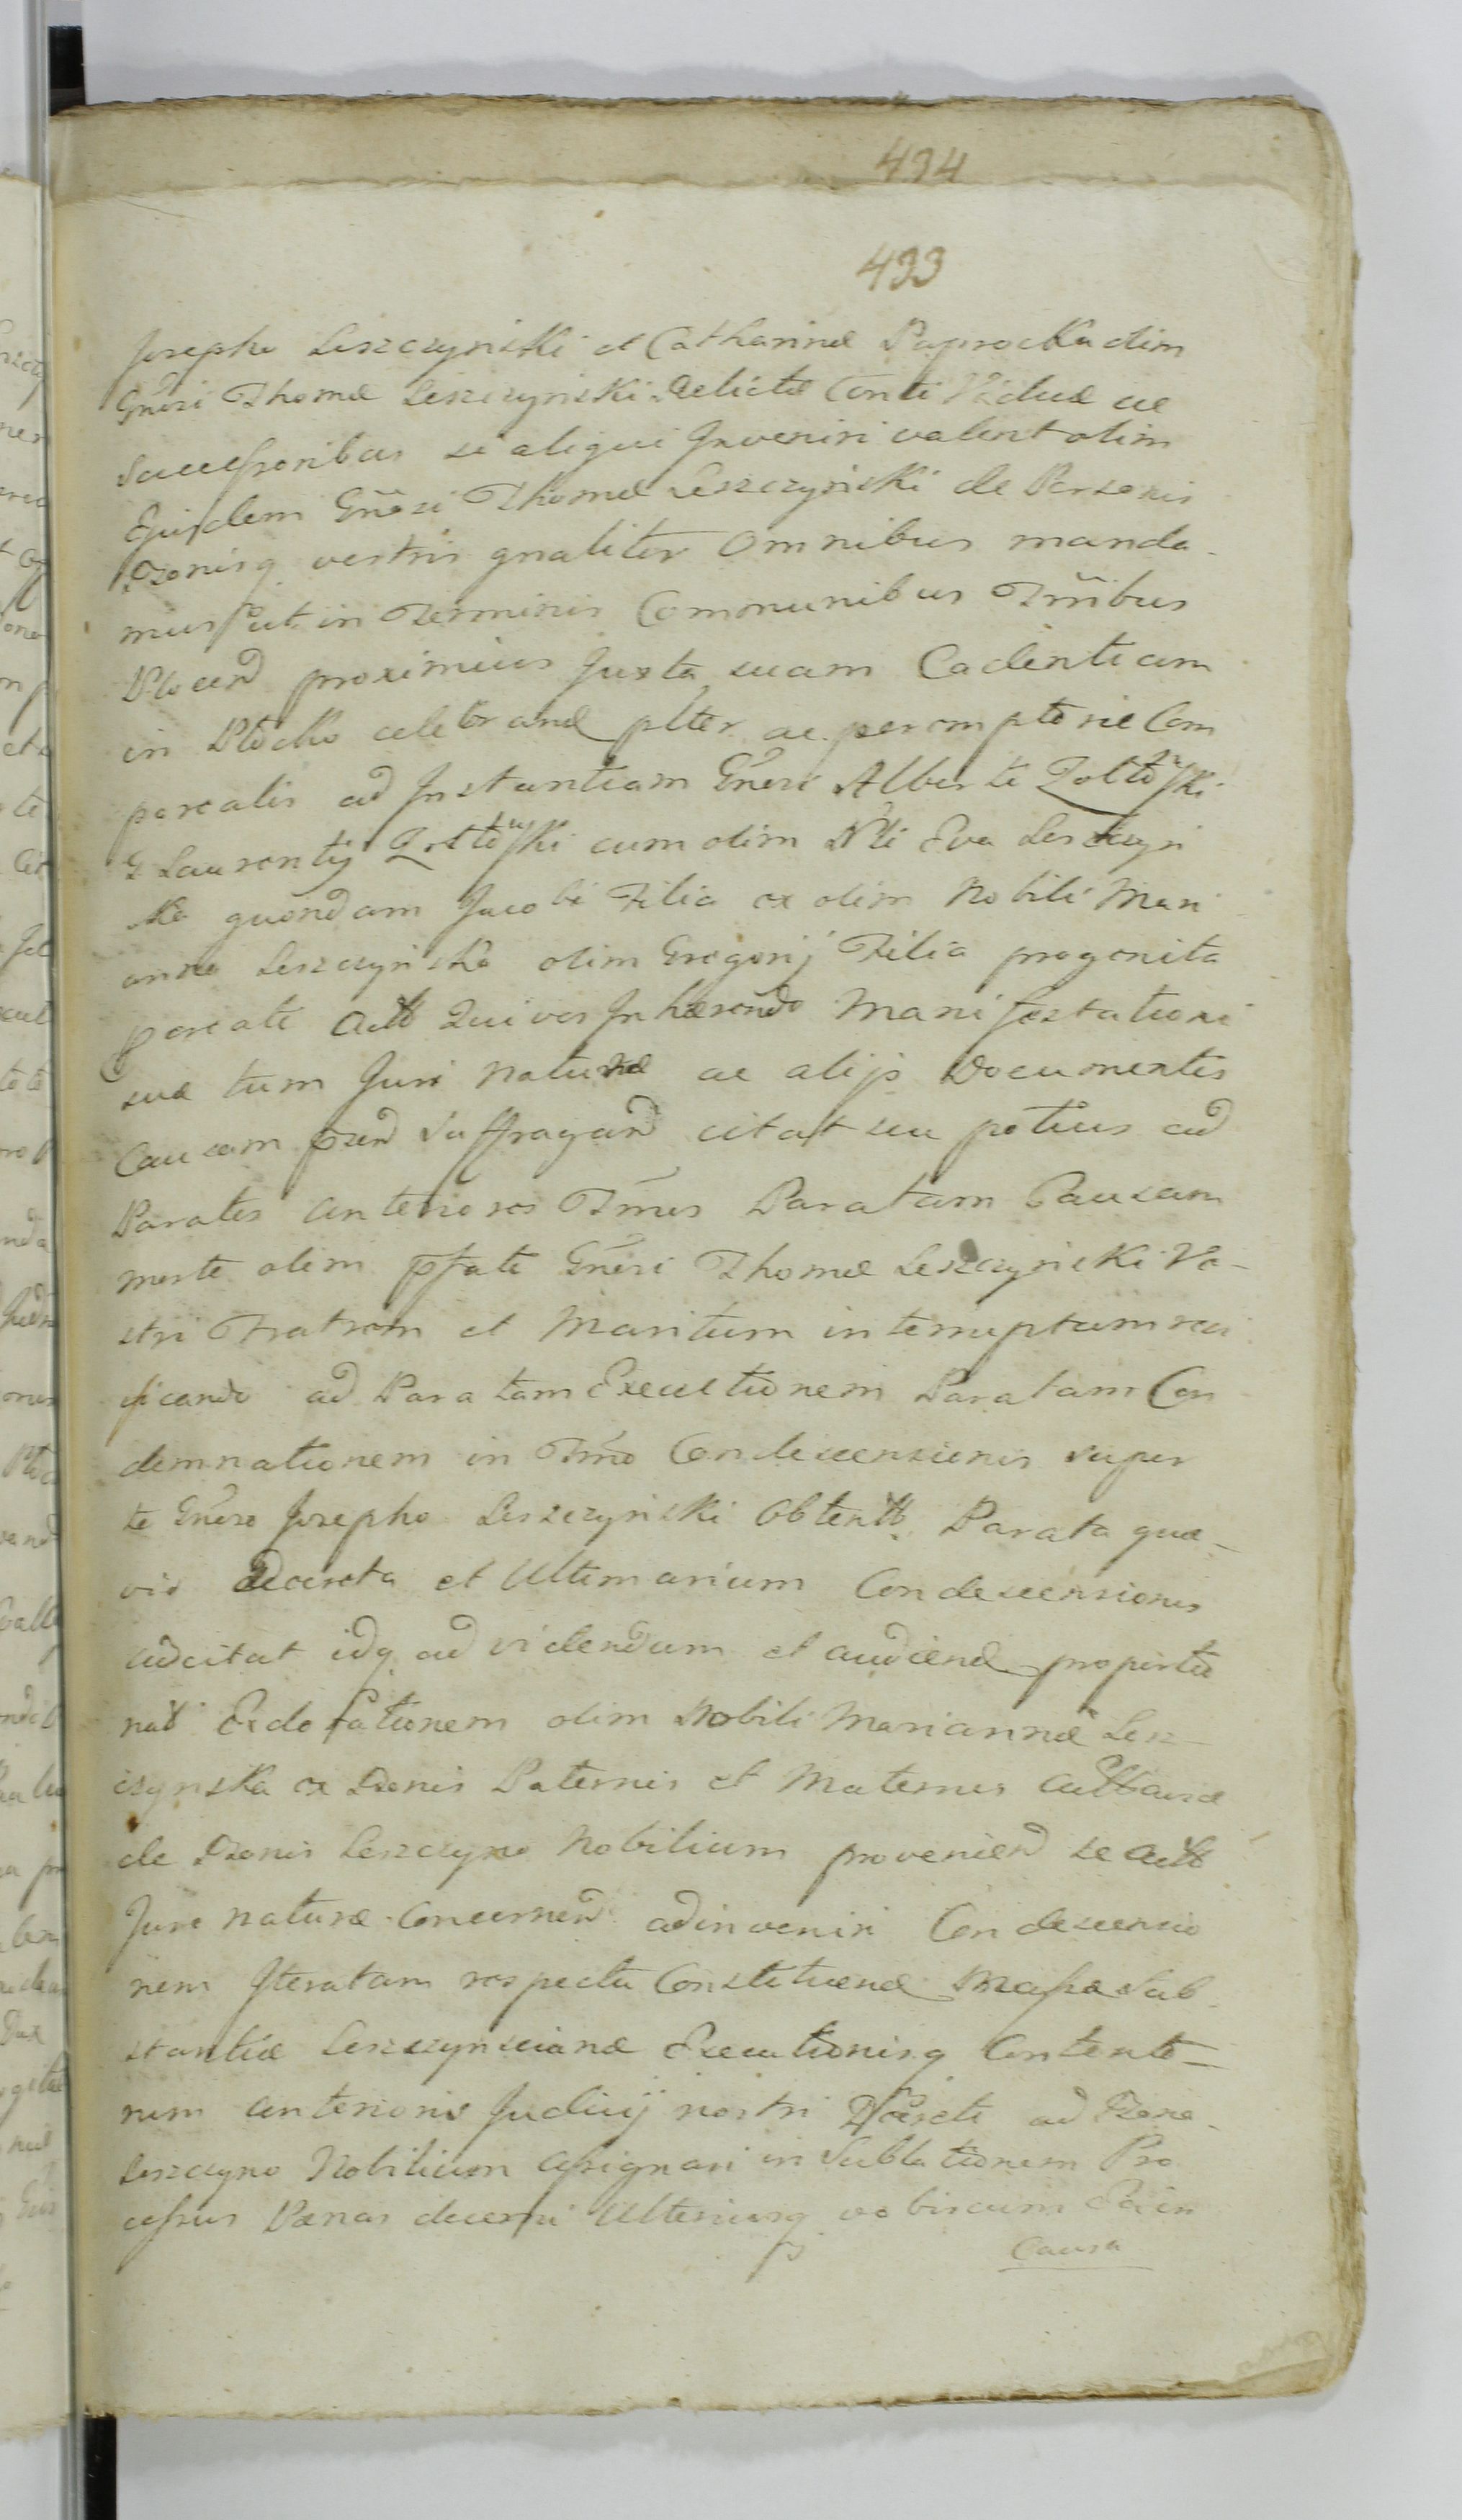 494
493
Josepho Leszczynski et Catharinæ Paprocka olim
Gnẽsi Thomæ Leszczynski Relictæ Consti Viduæ ac
Successoribus si aliqui Inveniri valent olim
Ejusdem Gnẽosi Thomæ Leszczynski de Personis
Bonisq vestris gnaliter Omnibus manda-
mus ut in Terminis Communibus Tñibus
Plocen proximius Juxta suam Cadentiam
in Plocko celebrand plter ac peremptorie Com
pareatis ad Instantiam Gnẽsi Alberti Zoltõski
G Laurentij Zoltõski cum olim Nli Eva Leszczyn
ska quondam Jacobi Filia ex olim Nobili Mari
anna Leszczynska olim Gregorij Filia progenita
pcreati Actt Qui vos Inhærendo Manifestationi
suæ tum Juri Naturæ ac alijs Documentis
Causam psend Suffragand citat seu potius ad
Paratos anteriores Tm̃os Paratam Causam
morte olim pfati Gnẽsi Thomæ Leszczynski Ve-
stri Fratrem et Maritum interruptam revi
ficando ad Paratam Executionem Paratam Con
demnationem in Tm̃o Condescensionis super
te Gnẽso Josepho Leszczynski Obtentt. Parata quæ-
vis Decreta et Ultimarium Condescensionis
adcitat idq ad videndum et audiend propertio
natt Exdotationem olim Nobili Mariannæ Lesz-
czynska ex Bonis Paternis et Maternis
de Bonis Leszczyno Nobilium proveniend se Actt
Jure naturæ Concernend adinveniri Condescensio
nem Iteratam respectu Constituend Massæ Sub-
stantiæ Leszczynscianæ Executionisq Contento-
rum anterioris Judicij nostri Dcreti ad Bona
Leszczyno Nobilium assignari in Sublationem Pro
cessus Pænas decerni Ulteriusq vobiscum Ea in
Causa